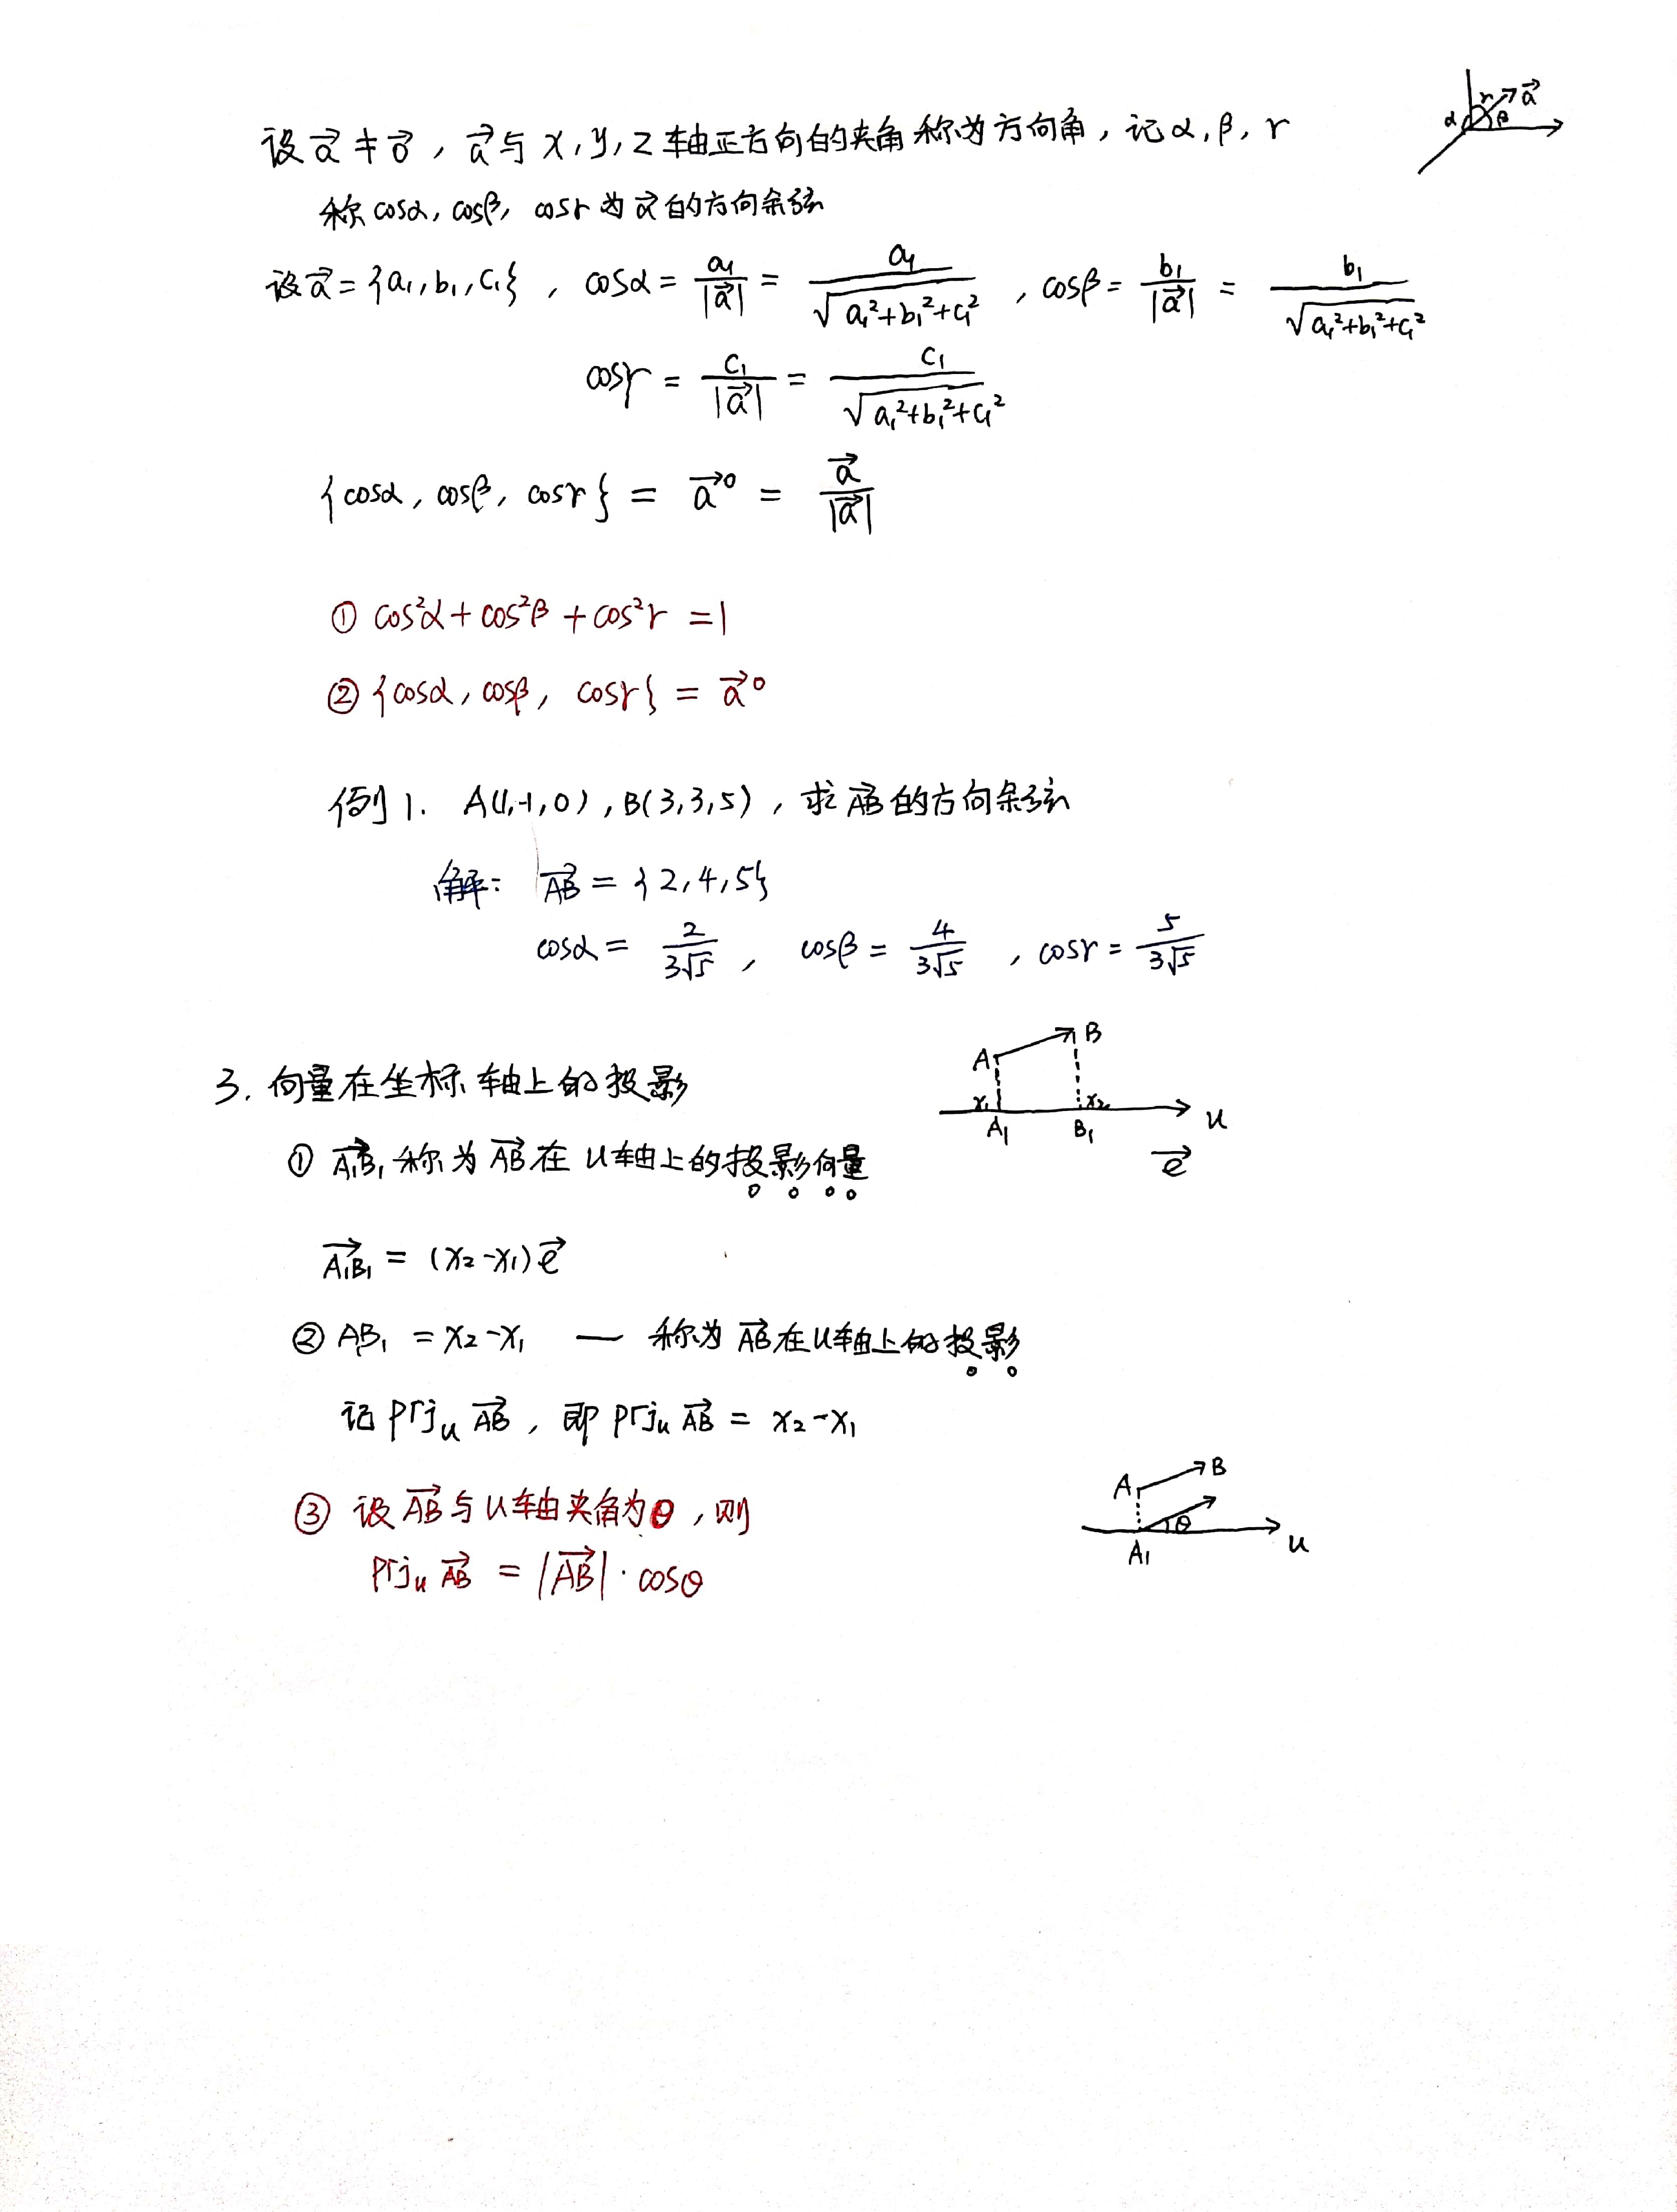 设 $\vec{a} \neq \vec{0}$ , $\vec{a}$ 与 x, y, z 轴正方向的夹角称为方向角, 记 α, β, r
称 cosα, cosβ, cosr 为 $\vec{a}$ 的方向余弦
设 $\vec{a} = \{a_1, b_1, c_1\}$ , $\cos\alpha = \frac{a_1}{|\vec{a}|} = \frac{a_1}{\sqrt{a_1^2+b_1^2+c_1^2}}$ , $\cos\beta = \frac{b_1}{|\vec{a}|} = \frac{b_1}{\sqrt{a_1^2+b_1^2+c_1^2}}$
$\cos r = \frac{c_1}{|\vec{a}|} = \frac{c_1}{\sqrt{a_1^2+b_1^2+c_1^2}}$
$\{\cos\alpha, \cos\beta, \cos r\} = \vec{a}^0 = \frac{\vec{a}}{|\vec{a}|}$
① $\cos^2\alpha + \cos^2\beta + \cos^2 r = 1$
② $\{\cos\alpha, \cos\beta, \cos r\} = \vec{a}^0$
例1. A(1,-1,0), B(3,3,5), 求 $\vec{AB}$ 的方向余弦
解: $\vec{AB} = \{2,4,5\}$
$\cos\alpha = \frac{2}{3\sqrt{5}}$ , $\cos\beta = \frac{4}{3\sqrt{5}}$ , $\cos r = \frac{5}{3\sqrt{5}}$
3. 向量在坐标轴上的投影
① $\vec{A_1B_1}$ 称为 $\vec{AB}$ 在 u轴上的投影向量
$\vec{A_1B_1} = (x_2-x_1)\vec{e}$
② $AB_1 = x_2-x_1$ — 称为 $\vec{AB}$ 在u轴上的投影
记 $Prj_u \vec{AB}$ , 即 $Prj_u \vec{AB} = x_2-x_1$
③ 设 $\vec{AB}$ 与 u轴夹角为θ, 则
$Prj_u \vec{AB} = |\vec{AB}| \cdot \cos\theta$
r $\vec{a}$
α β
A B
$x_1$ $x_2$
$A_1$ $B_1$ u
$\vec{e}$
A B
θ
$A_1$ u